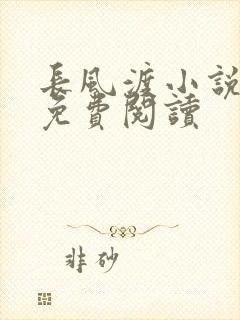 長風渡小說
免費閱讀
非砂